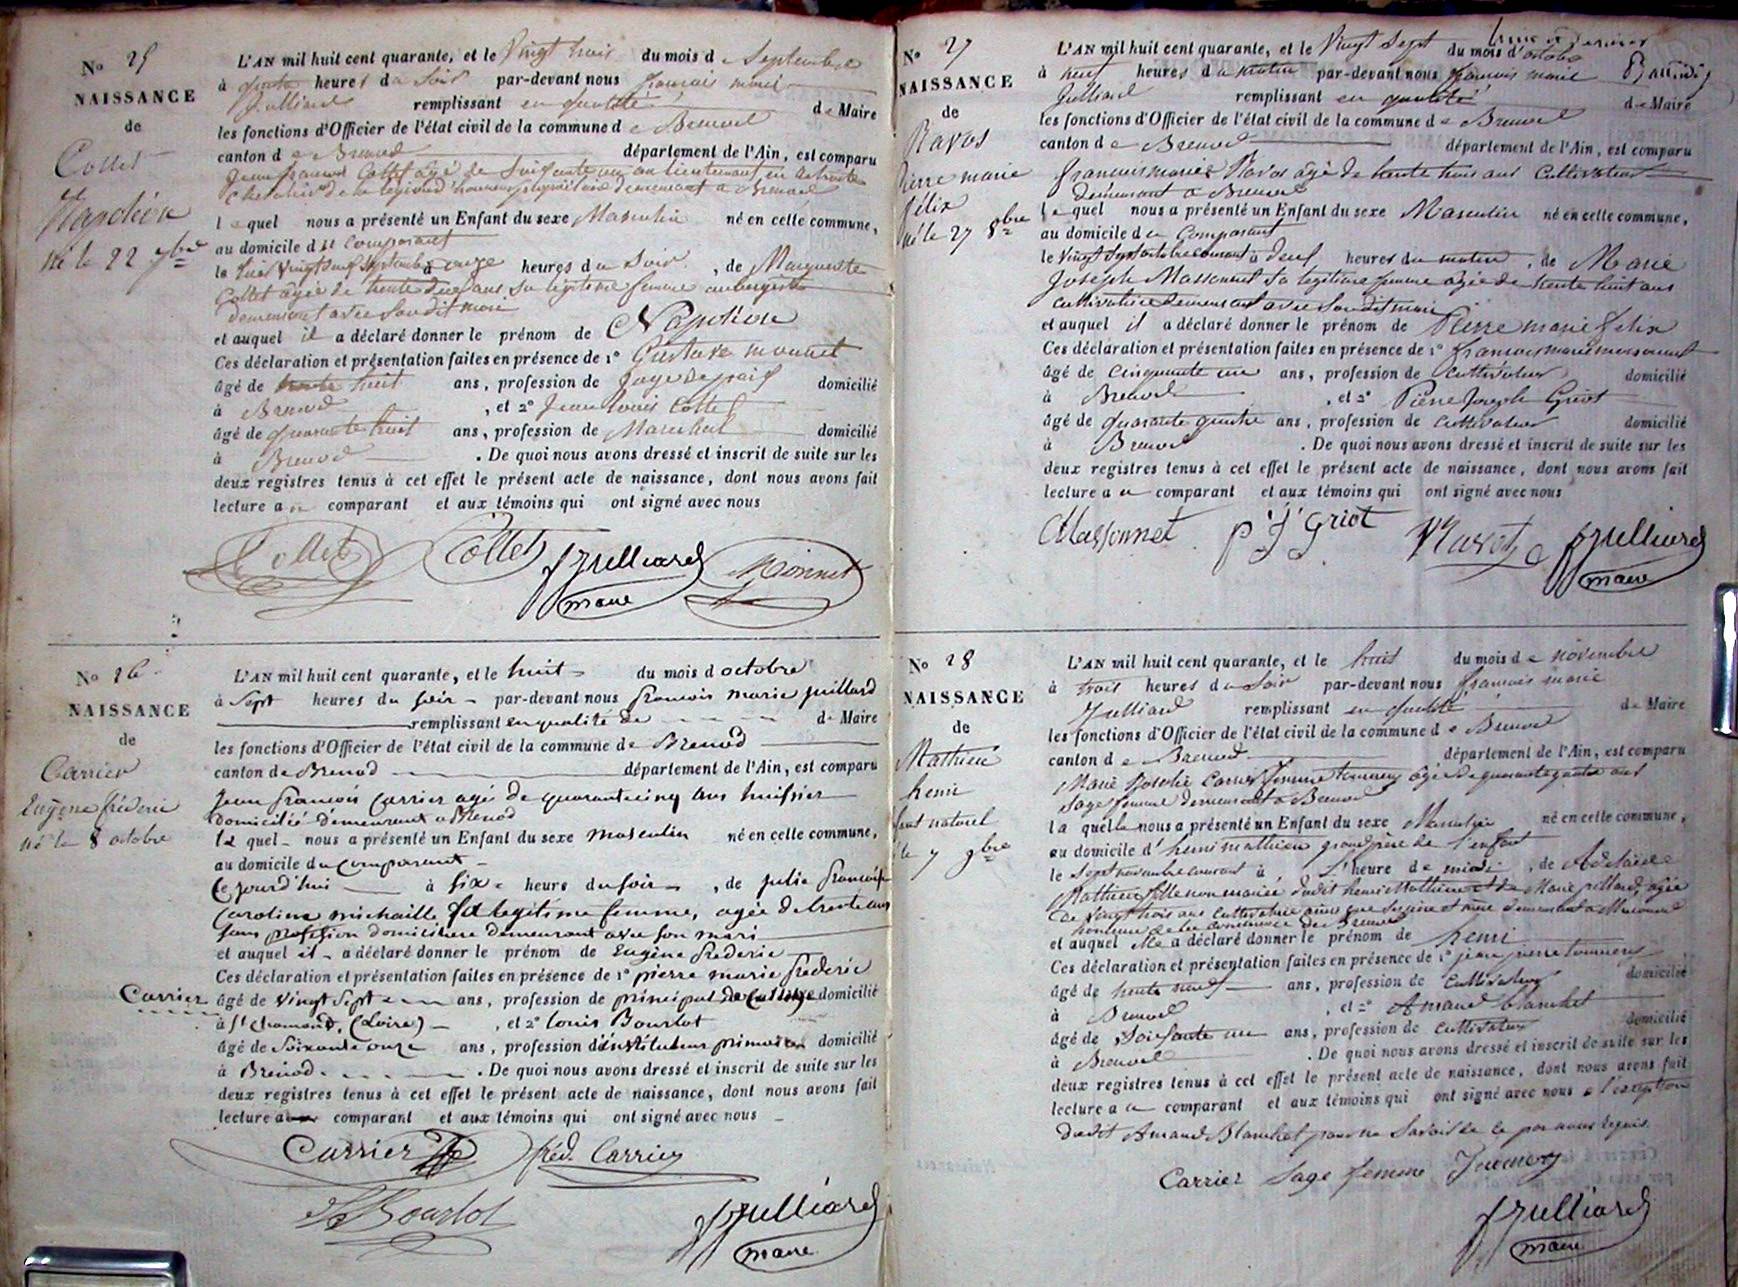 N° 25
NAISSANCE
de
Collet
Napoléon
né le 22 7bre
L'AN mil huit cent quarante, et le Vingt trois du mois de Septembre
à heures du Soir par-devant nous françois marie
Julliard remplissant en qualité de Maire
les fonctions d'Officier de l'état civil de la commune de Brenod
canton de Brenod département de l'Ain, est comparu
Jean françois Collet âgé de Soixante un an Lieutenant en retraite
Chevalier de la légion d'honneur propriétaire demeurant a Brenod
lequel nous a présenté un Enfant du sexe Masculin né en cette commune,
au domicile du Comparant
le Vingt deux Septembre à onze heures du Soir, de Marguerite
Collet âgée de trente deux ans Sa légitime femme aubergiste
demeurant avec Son dit mari
et auquel il a déclaré donner le prénom de Napoléon
Ces déclaration et présentation faites en présence de 1° Gustave monnet
âgé de trente huit ans, profession de Juge de paix domicilié
à Brenod, et 2° Jean Louis Collet
âgé de quarante huit ans, profession de Maréchal domicilié
à Brenod. De quoi nous avons dressé et inscrit de suite sur les
deux registres tenus à cet effet le présent acte de naissance, dont nous avons fait
lecture au comparant et aux témoins qui ont signé avec nous
Collet Collet fs Julliard Monnet
maire
N° 26
NAISSANCE
de
Carrier
Eugène fréderic
né le 8 octobre
L'AN mil huit cent quarante, et le huit du mois d octobre
à Sept heures du Soir par-devant nous françois marie juillard
remplissant en qualité de de Maire
les fonctions d'Officier de l'état civil de la commune de Brenod
canton de Brenod département de l'Ain, est comparu
Jean françois Carrier agé de quarante cinq ans huissier
domicilié demeurant a Brenod
le quel nous a présenté un Enfant du sexe masculin né en cette commune,
au domicile du comparant
Ce jourd'hui à Six heures du soir, de julie françoise
Caroline michaille Sa légitime femme, agée de trente ans
sans profession domiciliere demeurant avec son mari
et auquel il a déclaré donner le prénom de Eugène frederic
Ces déclaration et présentation faites en présence de 1° pierre marie frederic
Carrier âgé de vingt Sept ans, profession de principal de College domicilié
à St chamond, (Loire), et 2° louis Bourlot
âgé de Soixante onze ans, profession d'instituteur primaire domicilié
à Brenod. De quoi nous avons dressé et inscrit de suite sur les
deux registres tenus à cet effet le présent acte de naissance, dont nous avons fait
lecture au comparant et aux témoins qui ont signé avec nous
Carrier fréd. Carrier
Bourlot fs Julliard
maire
N° 27
NAISSANCE
de
Ravos
Pierre marie
félix
né le 27 8bre
L'AN mil huit cent quarante, et le Vingt Sept du mois d'octobre
à neuf heures du matin par-devant nous françois marie
Julliard remplissant en qualité de Maire
les fonctions d'Officier de l'état civil de la commune de Brenod
canton de Brenod département de l'Ain, est comparu
françois marie Ravos âgé de trente trois ans Cultivateur
demeurant a Brenod
lequel nous a présenté un Enfant du sexe Masculin né en cette commune,
au domicile du Comparant
le Vingt Sept octobre courant à deux heures du matin, de Marie
Joseph Massonnet Sa légitime femme agée de trente huit ans
cultivatrice demeurant avec Son dit mari
et auquel il a déclaré donner le prénom de Pierre marie félix
Ces déclaration et présentation faites en présence de 1° françois marie massonnet
âgé de cinquante un ans, profession de cultivateur domicilié
à Brenod, et 2° Pierre Joseph Griot
âgé de quarante quatre ans, profession de cultivateur domicilié
à Brenod. De quoi nous avons dressé et inscrit de suite sur les
deux registres tenus à cet effet le présent acte de naissance, dont nous avons fait
lecture au comparant et aux témoins qui ont signé avec nous
Massonnet p J Griot Ravot fs Julliard
maire
N° 28
NAISSANCE
de
Mathieu
henri
enfant naturel
né le 7 9bre
L'AN mil huit cent quarante, et le huit du mois de novembre
à trois heures du Soir par-devant nous françois marie
Julliard remplissant en qualité de Maire
les fonctions d'Officier de l'état civil de la commune de Brenod
canton de Brenod département de l'Ain, est comparu
Marie Carrier femme âgée de quarante quatre ans
Sage femme demeurant a Brenod
la quelle nous a présenté un Enfant du sexe Masculin né en cette commune,
au domicile d' henri mathieu grand père de l'enfant
le Sept novembre courant à L'heure de midi, de Adelaïde
Mathieu fille non mariée dudit henri Mathieu et de Marie agée
de Vingt trois ans cultivatrice ainsi que Ses père et mère demeurant a
commune de Brenod
et auquel elle a déclaré donner le prénom de henri
Ces déclaration et présentation faites en présence de 1° jean pierre
âgé de trente neuf ans, profession de Cultivateur domicilié
à Brenod, et 2° Amand blanchet
âgé de Soixante un ans, profession de cultivateur domicilié
à Brenod. De quoi nous avons dressé et inscrit de suite sur les
deux registres tenus à cet effet le présent acte de naissance, dont nous avons fait
lecture au comparant et aux témoins qui ont signé avec nous a l'exception
dudit Amand Blanchet pour ne Savoir de ce par nous requis.
Carrier Sage femme
fs Julliard
maire